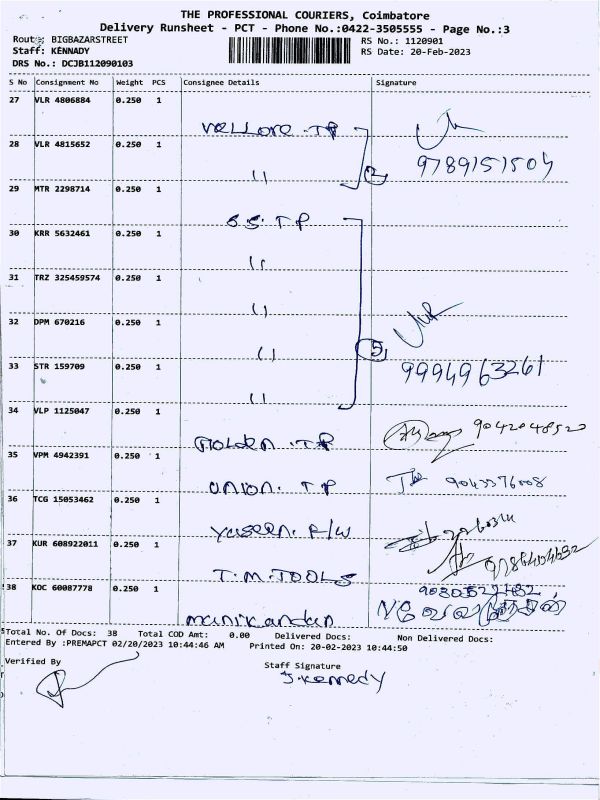 THE PROFESSIONAL COURIERS, Coimbatore
Delivery Runsheet - PCT - Phone No.:0422-3505555 - Page No.:3
Route: BIGBAZARSTREET
RS No.: 1120901
Staff: KENNADY
RS Date: 20-Feb-2023
DRS No.: DCJB112090103
S No Consignment No Weight PCS Consignee Details Signature
27 VLR 4806884 0.250 1
vellore. TP
28 VLR 4815652 0.250 1
9789151504
" 2
29 MTR 2298714 0.250 1
S.S. TP
30 KRR 5632461 0.250 1
"
31 TRZ 325459574 0.250 1
"
32 DPM 670216 0.250 1
" 5
33 STR 159709 0.250 1
9994963261
"
34 VLP 1125047 0.250 1
Molden. TP 9042048520
35 VPM 4942391 0.250 1
union. TP
36 TCG 15053462 0.250 1
yaseen. F/W
37 KUR 608922011 0.250 1
T.M. TOOLS
38 KOC 60087778 0.250 1
manikandan
Total No. Of Docs: 38 Total COD Amt: 0.00 Delivered Docs: Non Delivered Docs:
Entered By :PREMAPCT 02/20/2023 10:44:46 AM Printed On: 20-02-2023 10:44:50
Verified By
Staff Signature
J. Kennedy